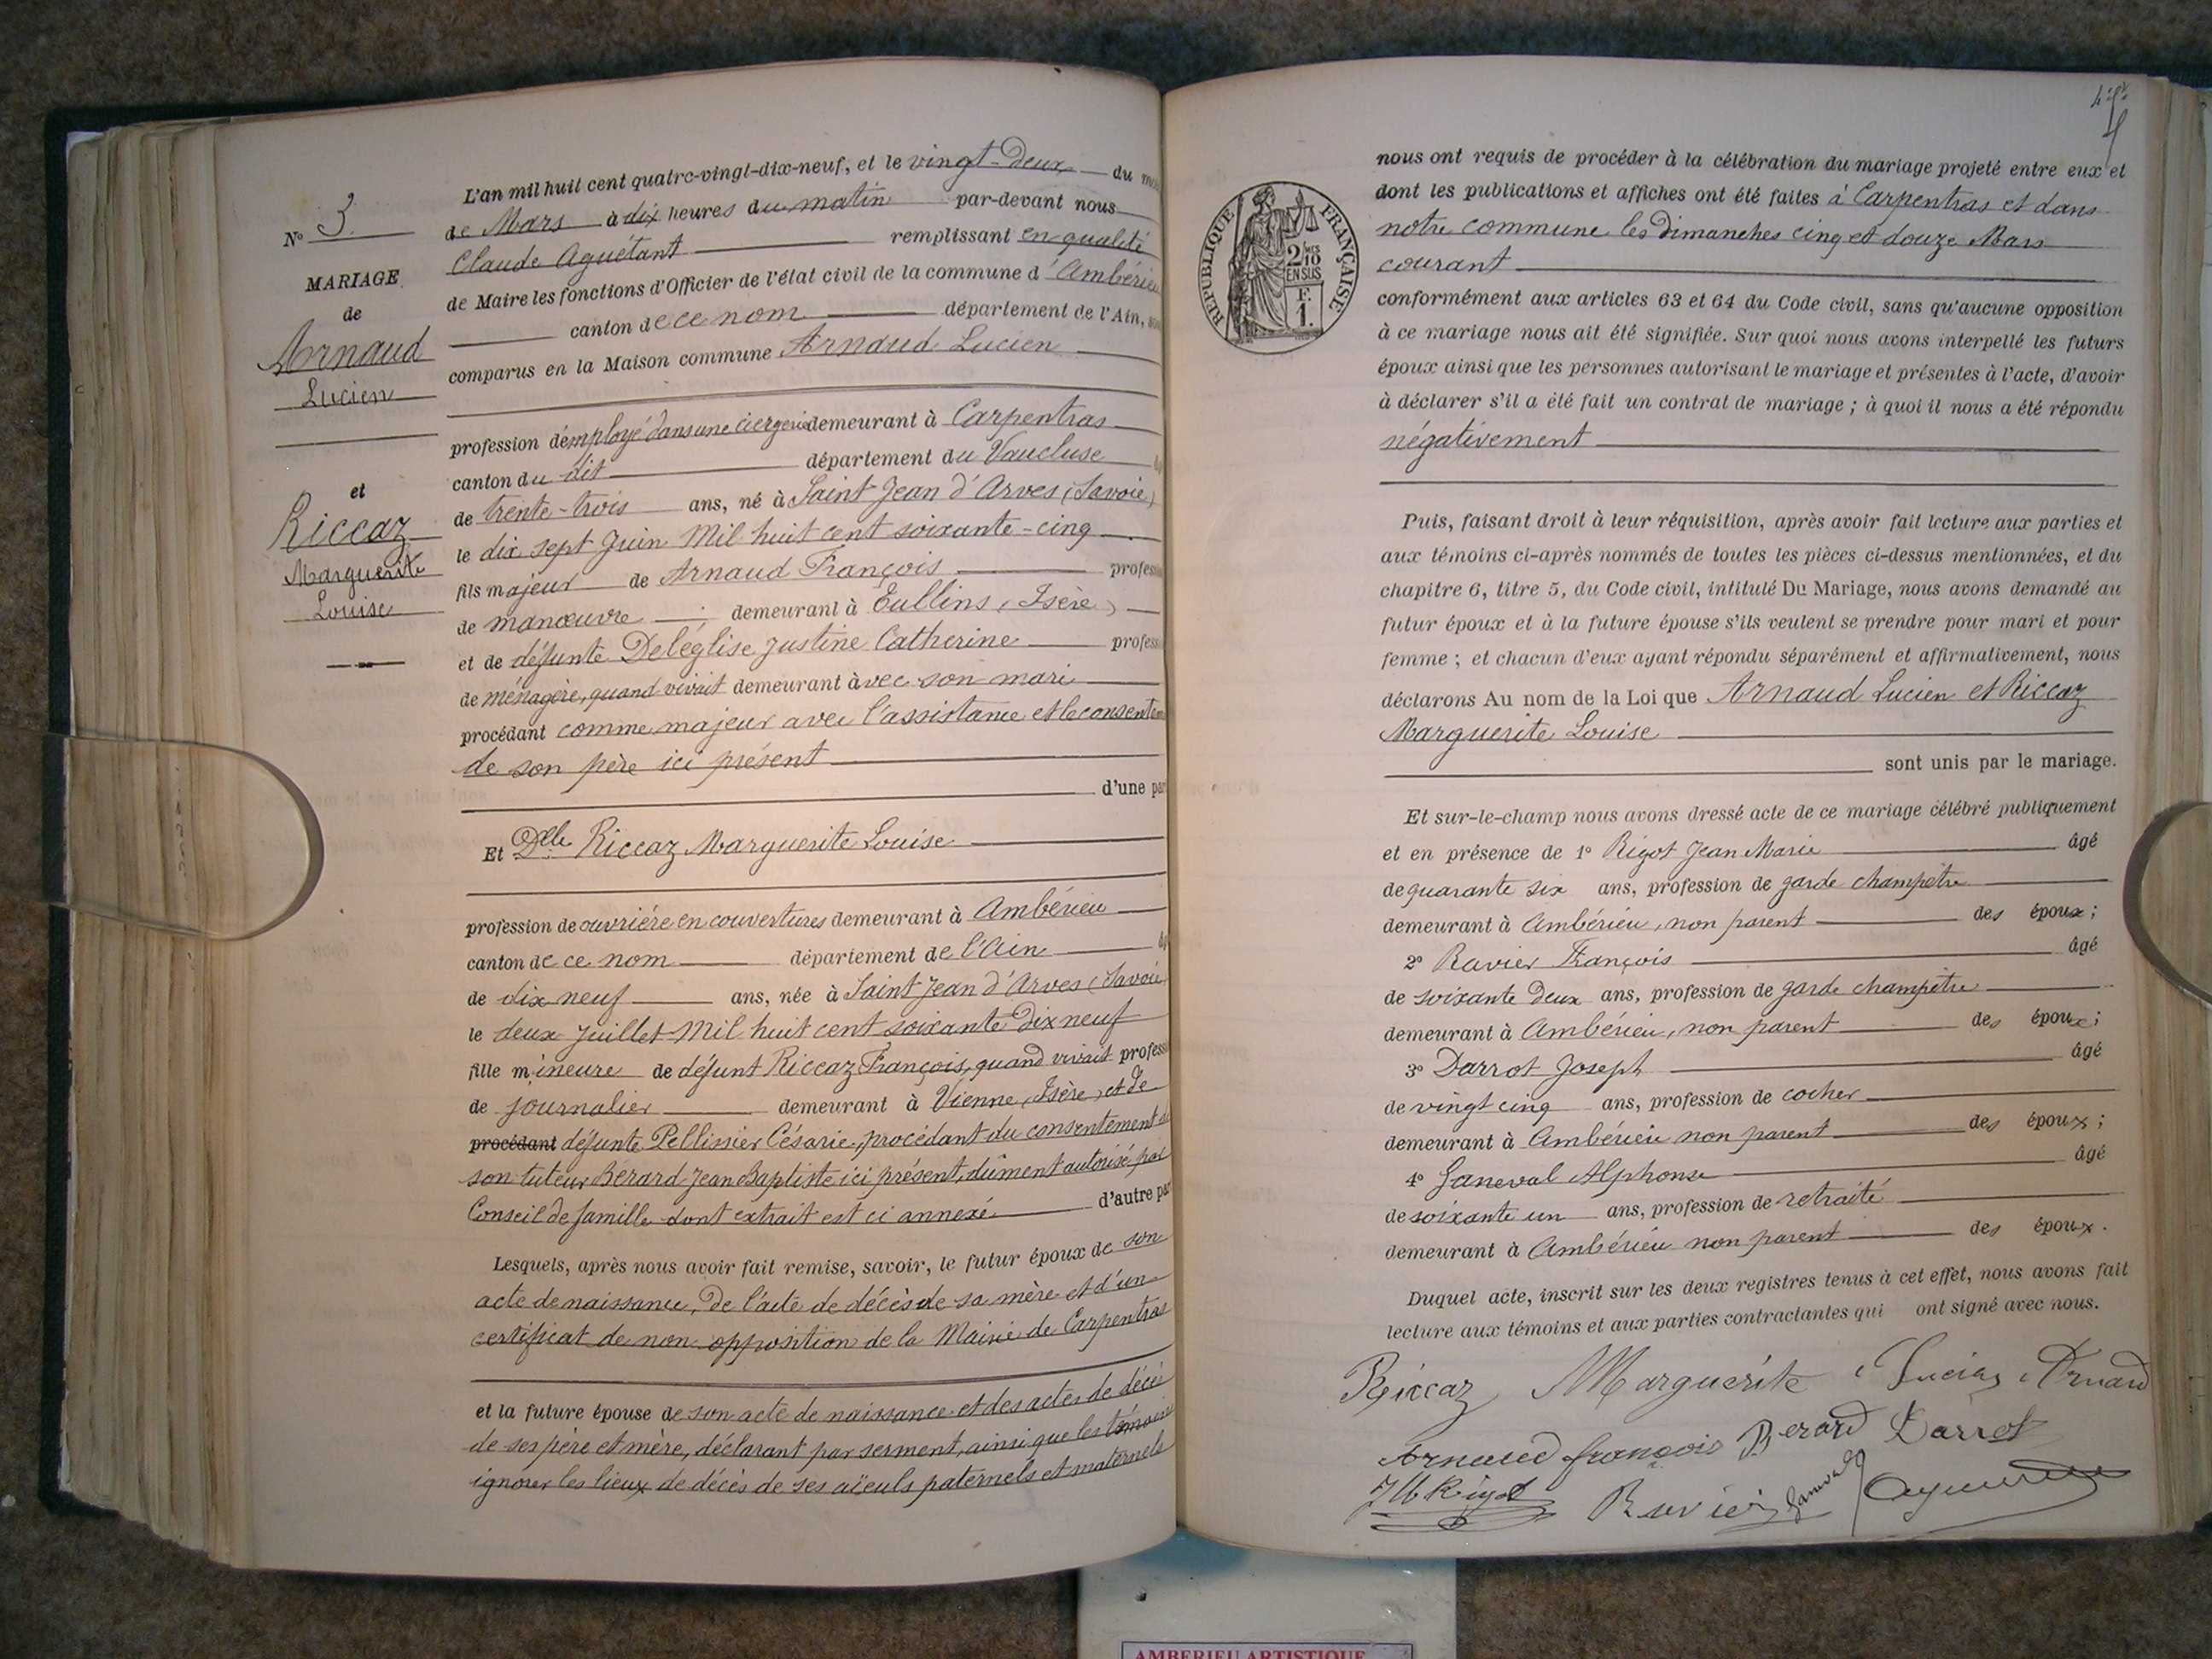 N° 3.
MARIAGE
de
Arnaud
Lucien
et
Riccaz
Marguerite
Louise
L'an mil huit cent quatre-vingt-dix-neuf, et le vingt-deux du mois
de Mars à dix heures du matin par-devant nous
Claude Aguétant remplissant en qualité
de Maire les fonctions d'Officier de l'état civil de la commune d'Ambérieu
canton de ce nom département de l'Ain,
comparus en la Maison commune Arnaud Lucien
profession d'employé dans une ciergerie demeurant à Carpentras
canton du dit département du Vaucluse
de trente-trois ans, né à Saint Jean d'Arves (Savoie)
le dix sept Juin Mil huit cent soixante-cinq
fils majeur de Arnaud François profess
de manœuvre ; demeurant à Tullins (Isère)
et de défunte Deléglise Justine Catherine profess
de ménagère, quand vivait demeurant avec son mari
procédant comme majeur avec l'assistance et le consentem
de son père ici présent
d'une par
Et Delle Riccaz Marguerite Louise
profession de ouvrière en couvertures demeurant à Ambérieu
canton de ce nom département de l'Ain
de dix neuf ans, née à Saint Jean d'Arves (Savoie
le deux Juillet Mil huit cent soixante dix neuf
fille mineure de défunt Riccaz François, quand vivait profess
de journalier demeurant à Vienne (Isère) et de
procédant défunte Pellissier Césarie, procédant du consentement de
son tuteur Bérard Jean Baptiste ici présent, dûment autorisé par
Conseil de famille dont extrait est ci annexé. d'autre par
Lesquels, après nous avoir fait remise, savoir, le futur époux de son
acte de naissance, de l'acte de décès de sa mère et d'un
certificat de non opposition de la Mairie de Carpentras
et la future épouse de son acte de naissance et des actes de décès
de ses père et mère, déclarant par serment, ainsi que les témoins
ignorer les lieux de décès de ses aïeuls paternels et maternels
RÉPUBLIQUE FRANÇAISE
2/10
EN SUS
F.
1.
nous ont requis de procéder à la célébration du mariage projeté entre eux et
dont les publications et affiches ont été faites à Carpentras et dans
notre commune les Dimanches cinq et douze Mars
courant
conformément aux articles 63 et 64 du Code civil, sans qu'aucune opposition
à ce mariage nous ait été signifiée. Sur quoi nous avons interpellé les futurs
époux ainsi que les personnes autorisant le mariage et présentes à l'acte, d'avoir
à déclarer s'il a été fait un contrat de mariage ; à quoi il nous a été répondu
négativement
Puis, faisant droit à leur réquisition, après avoir fait lecture aux parties et
aux témoins ci-après nommés de toutes les pièces ci-dessus mentionnées, et du
chapitre 6, titre 5, du Code civil, intitulé Du Mariage, nous avons demandé au
futur époux et à la future épouse s'ils veulent se prendre pour mari et pour
femme ; et chacun d'eux ayant répondu séparément et affirmativement, nous
déclarons Au nom de la Loi que Arnaud Lucien et Riccaz
Marguerite Louise
sont unis par le mariage.
Et sur-le-champ nous avons dressé acte de ce mariage célébré publiquement
et en présence de 1° Rigot Jean Marie âgé
de quarante six ans, profession de garde champêtre
demeurant à Ambérieu, non parent des époux ;
2° Ravier François âgé
de soixante deux ans, profession de garde champêtre
demeurant à Ambérieu, non parent des époux ;
3° Darrot Joseph âgé
de vingt cinq ans, profession de cocher
demeurant à Ambérieu non parent des époux ;
4° Janeval Alphonse âgé
de soixante un ans, profession de retraité
demeurant à Ambérieu non parent des époux.
Duquel acte, inscrit sur les deux registres tenus à cet effet, nous avons fait
lecture aux témoins et aux parties contractantes qui ont signé avec nous.
Riccaz Marguerite Lucien Arnaud
Arnaud françois Berard Darrot
JM Rigot Ravier Janeval
AMBERIEU ARTISTIQUE